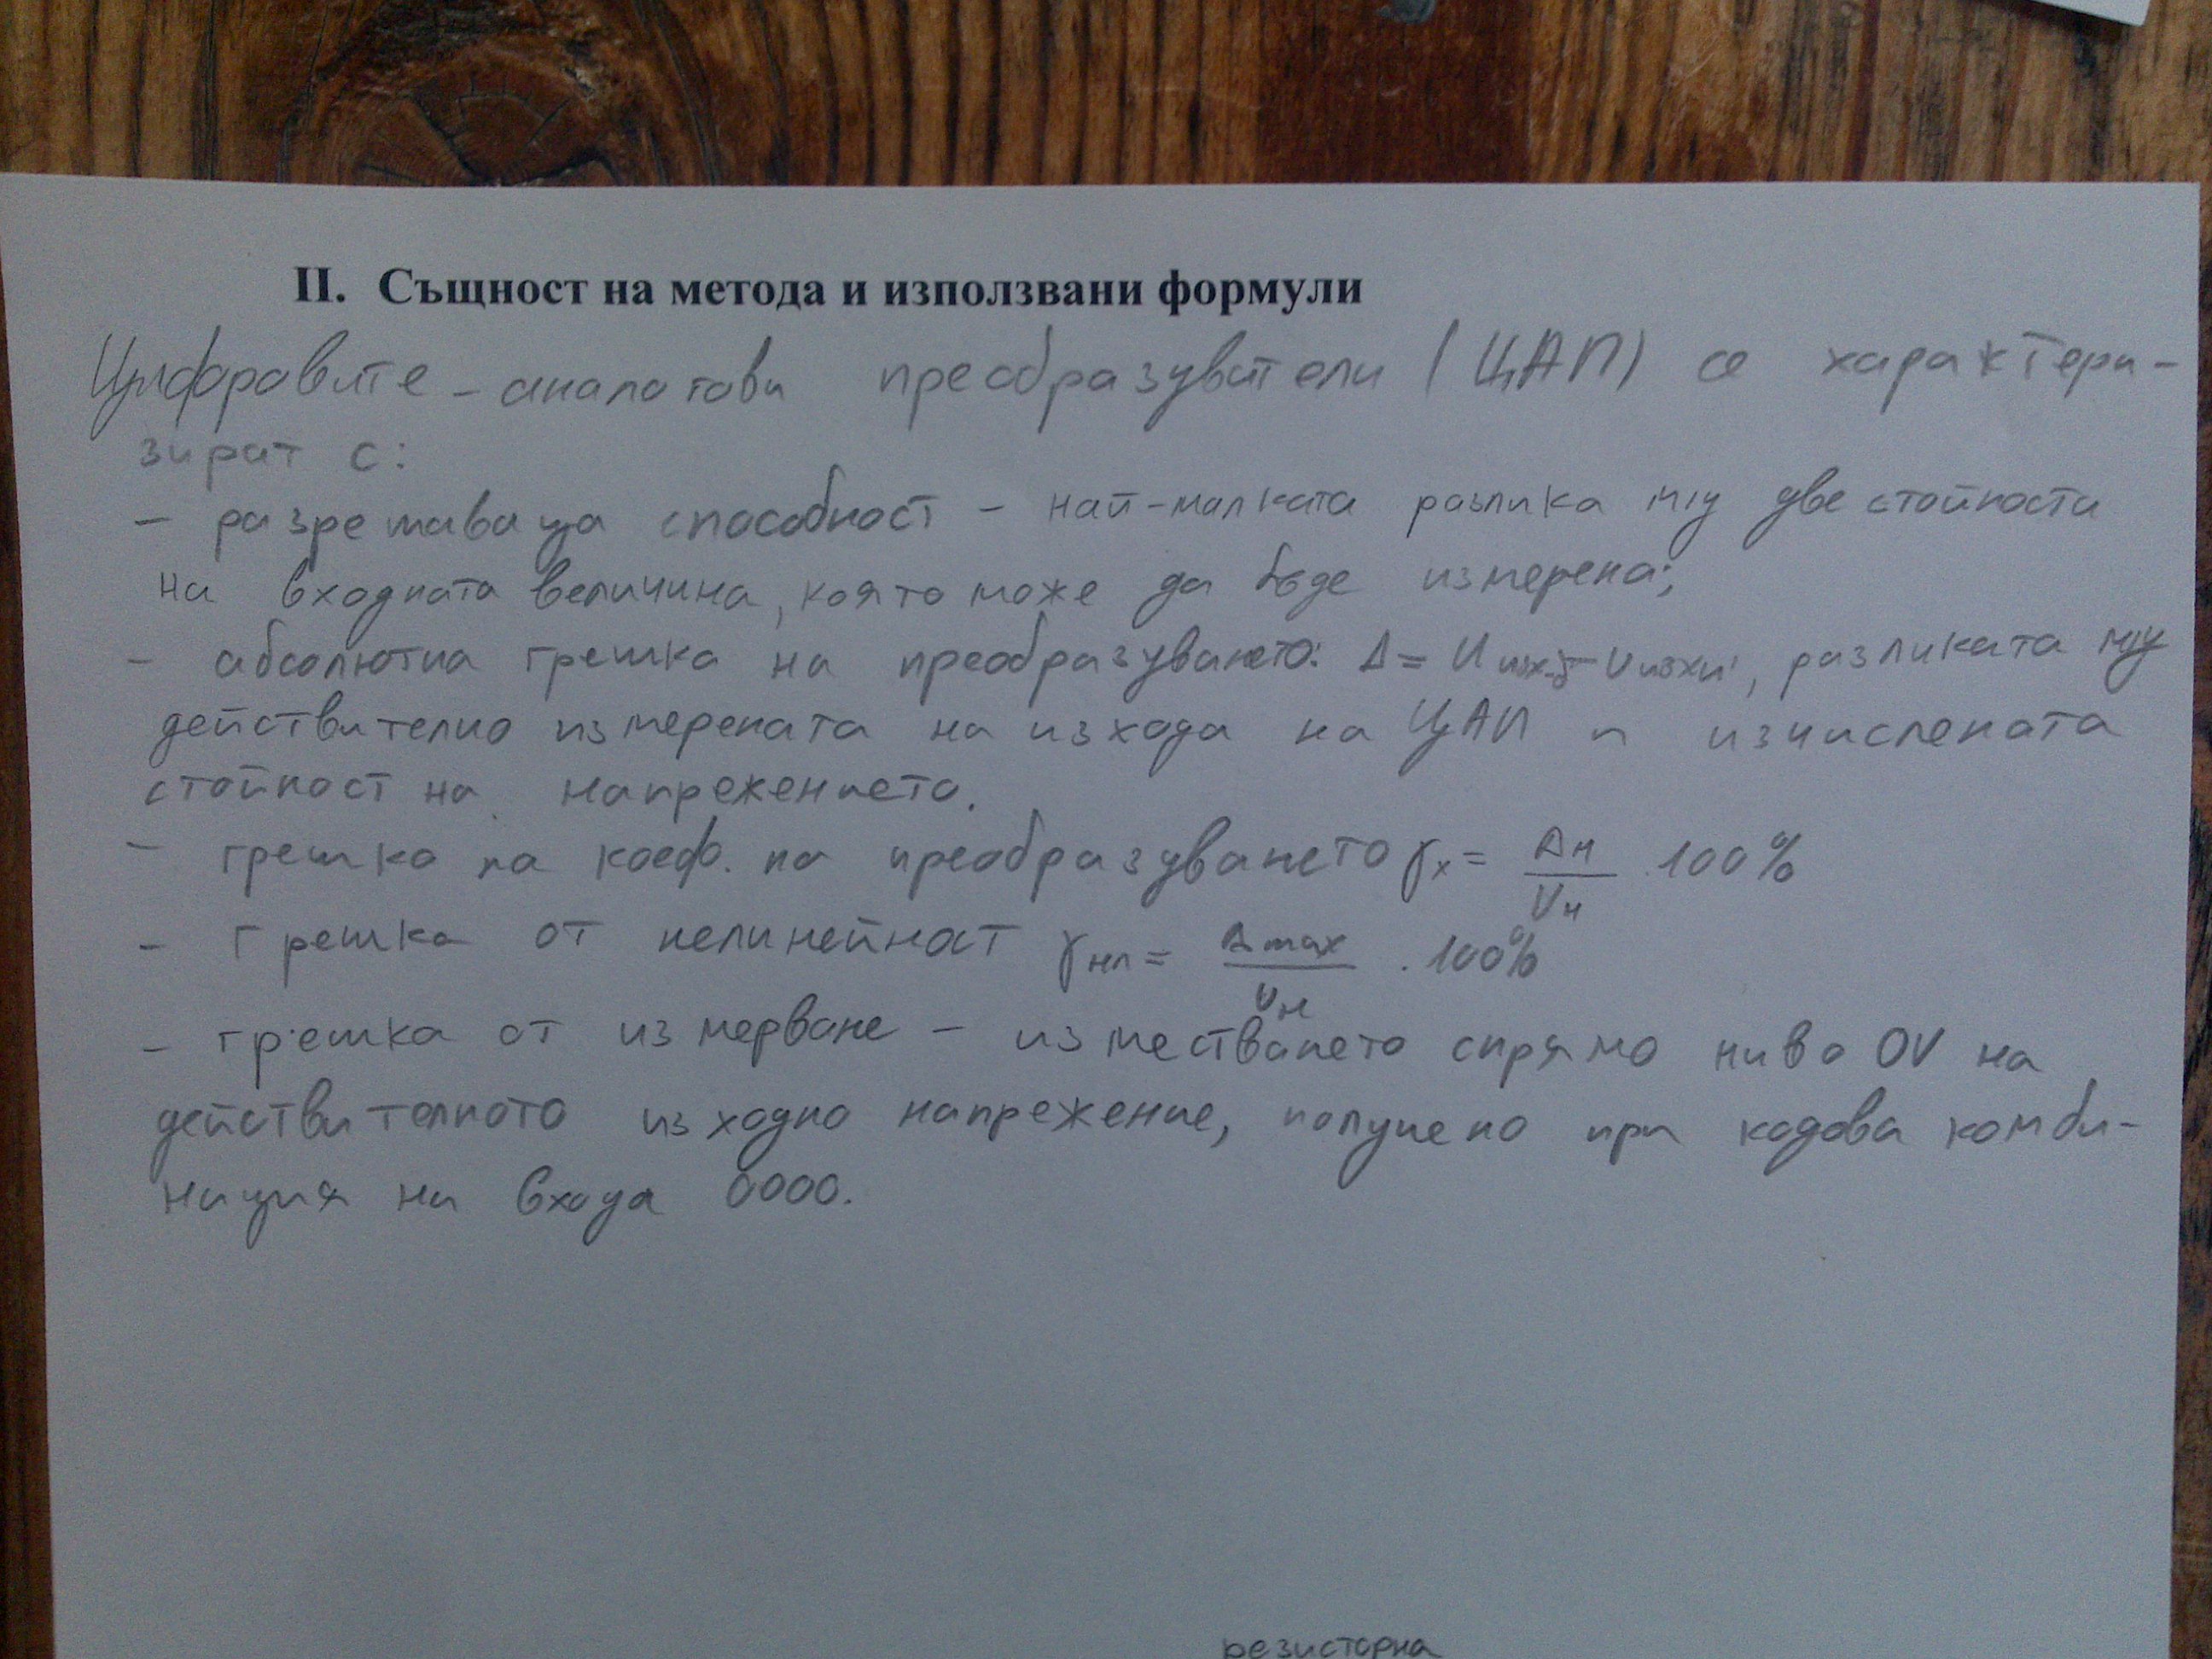 II. Същност на метода и използвани формули
Цифровите - аналогови преобразуватели (ЦАП) се характери-
зират с:
- разрешаваща способност - най-малката разлика м/у две стойности
на входната величина, която може да бъде измерена;
- абсолютна грешка на преобразуването: Δ = Uизх.д - Uизхи, разликата м/у
действително измерената на изхода на ЦАП и изчислената
стойност на напрежението.
- грешка на коеф. на преобразуването γх = Δн/Uн .100%
- Грешка от нелинейност γнл = Δmax/Uн . 100%
- грешка от измерване - изместването спрямо ниво 0V на
действителното изходно напрежение, получено при кодова комби-
нация на входа 0000.
резисторна